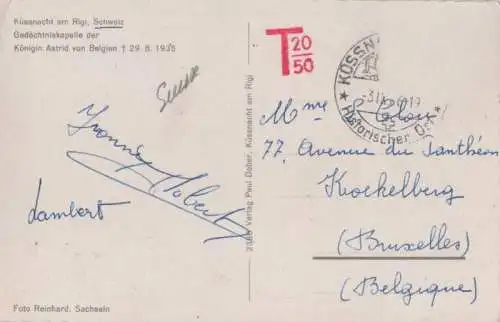 Küssnacht am Rigi, Schweiz
Gedächtniskapelle der
Königin Astrid von Belgien † 29. 8. 1935
Suisse
Yvonne
Lambert
Foto Reinhard, Sachseln
Verlag Paul Dober, Küssnacht am Rigi
T 20/50
KÜSSN
Historischer Ort
Mme
77, Avenue du Panthéon
Koekelberg
(Bruxelles)
(Belgique)